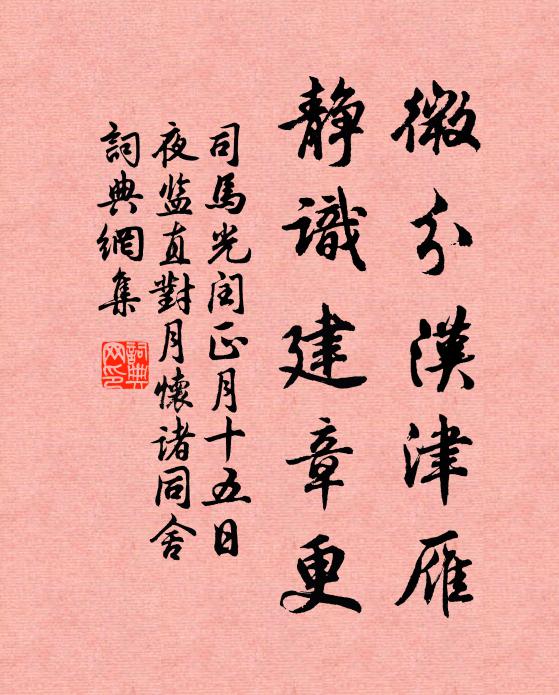 微分漢津雁
靜識建章更
司馬光閏正月十五日
夜监直對月懷诸同舍
詞典網集
詞典網印